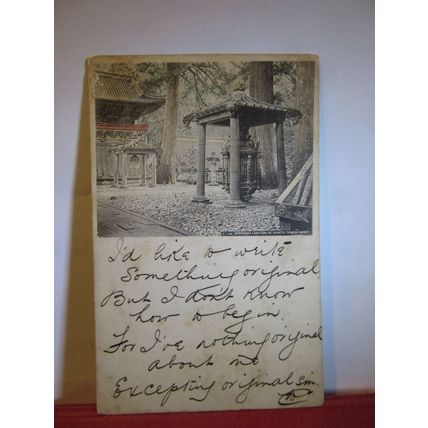 I'd like to write
Something original
But I don't know
how to begin.
For I've nothing original
about me
Excepting original sin.